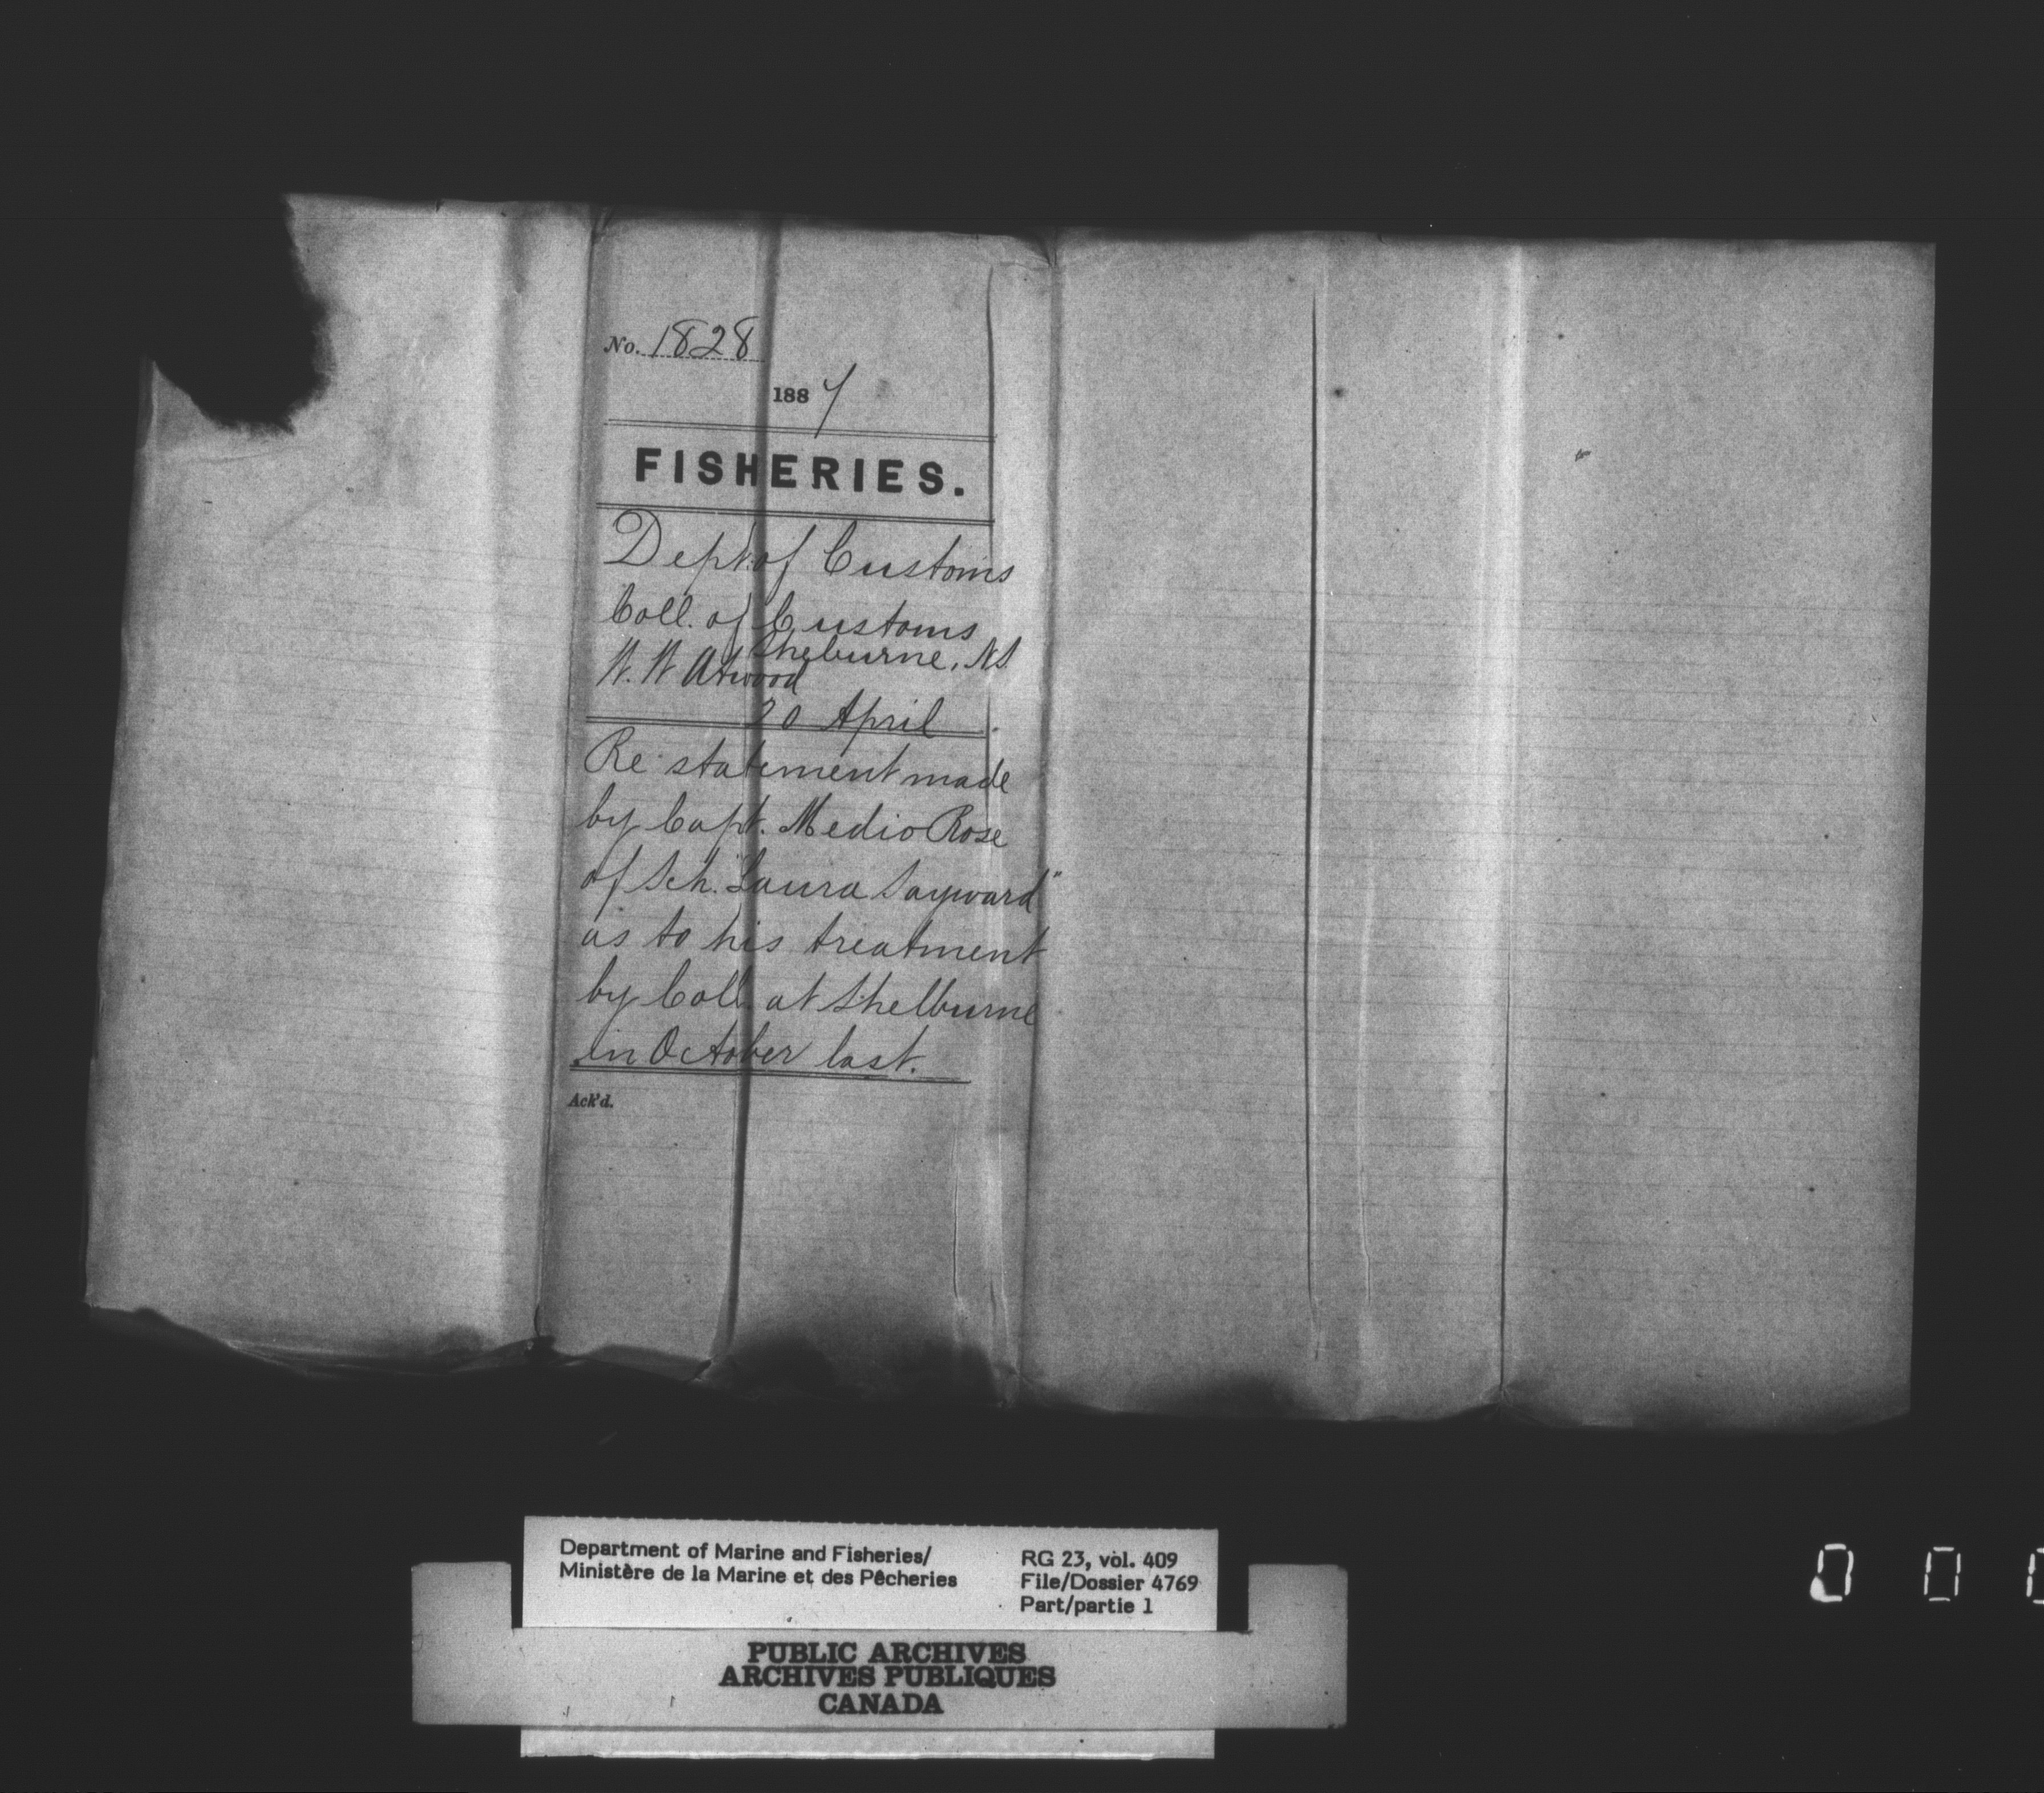 No. 1828
1887
FISHERIES.
Dept. of Customs
Coll. of Customs
Sheburne, N.S.
W. W Atwood
20 April
Re statement made
by Capt. Medio Rose
of Sch. "Laura Sayward"
as to his treatment
by Coll. at Shelburne
in October last.
Ack'd.
Department of Marine and Fisheries/
Ministère de la Marine et des Pêcheries
RG 23, vol. 409
File/Dossier 4769
Part/partie 1
PUBLIC ARCHIVES
ARCHIVES PUBLIQUES
CANADA
0 0